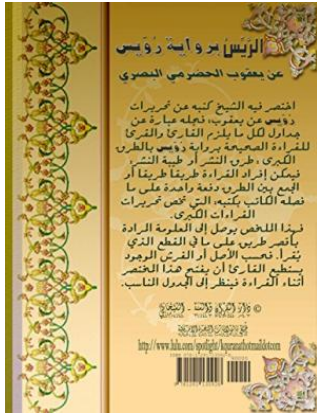 الرَّيْسُ برواية رُوَيس
عن يعقوب الحضرمي البصري
اختصر فيه الشيخ كتبه عن تحريرات
رُوَيس عن يعقوب، فجله عبارة عن
جداول لكل ما يلزم القارئ والمقرئ
للقراءة الصحيحة برواية رُوَيس بالطرق
الكبرى، طرق النشر أو طيبة النشر،
فيمكن إفراد القراءة طريقا طريقا أو
الجمع بين الطرق دفعة واحدة على ما
فصله الكاتب بكتبه، التي تخص تحريرات
القراءات الكبرى.
فهذا الملخص يوصل إلى المعلومة المرادة
بأقصر طريق على ما في المقطع الذي
يُقرأ. فحسب الأصل أو الفرش الموجود
يستطيع القارئ أن يفتح هذا المختصر
أثناء القراءة فينظر إلى الجدول المناسب.
http://www.lulu.com/spotlight/kquranathotmaildotcom